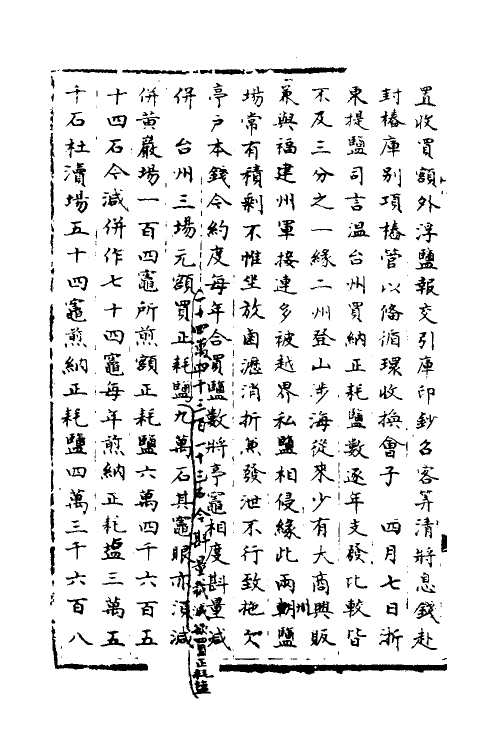 置收買額外浮鹽報交引庫印鈔召客筭清將息錢赴
封樁庫別項樁管以備循環收換會子　四月七日浙
東提鹽司言溫台州買納正耗鹽數逐年支發比較皆
不及三分之一緣二州登山涉海從來少有大商興販
兼與福建州軍接連多被越界私鹽相侵緣此兩州鹽
場常有積剩不惟坐放鹵瀝消折兼發泄不行致拖欠
亭戶本錢今約度每年合買鹽數將亭竈相度斟量減
併　台州三場元額買正耗鹽九萬石其竈眼亦須減
二十四萬四千三百一十三石今斟量裁減欲買正耗鹽
併黃巖場一百四竈所煎額正耗鹽六萬四千六百五
十四石今減併作七十四竈每年煎納正耗鹽三萬五
千石杜瀆場五十四竈煎納正耗鹽四萬三千六百八